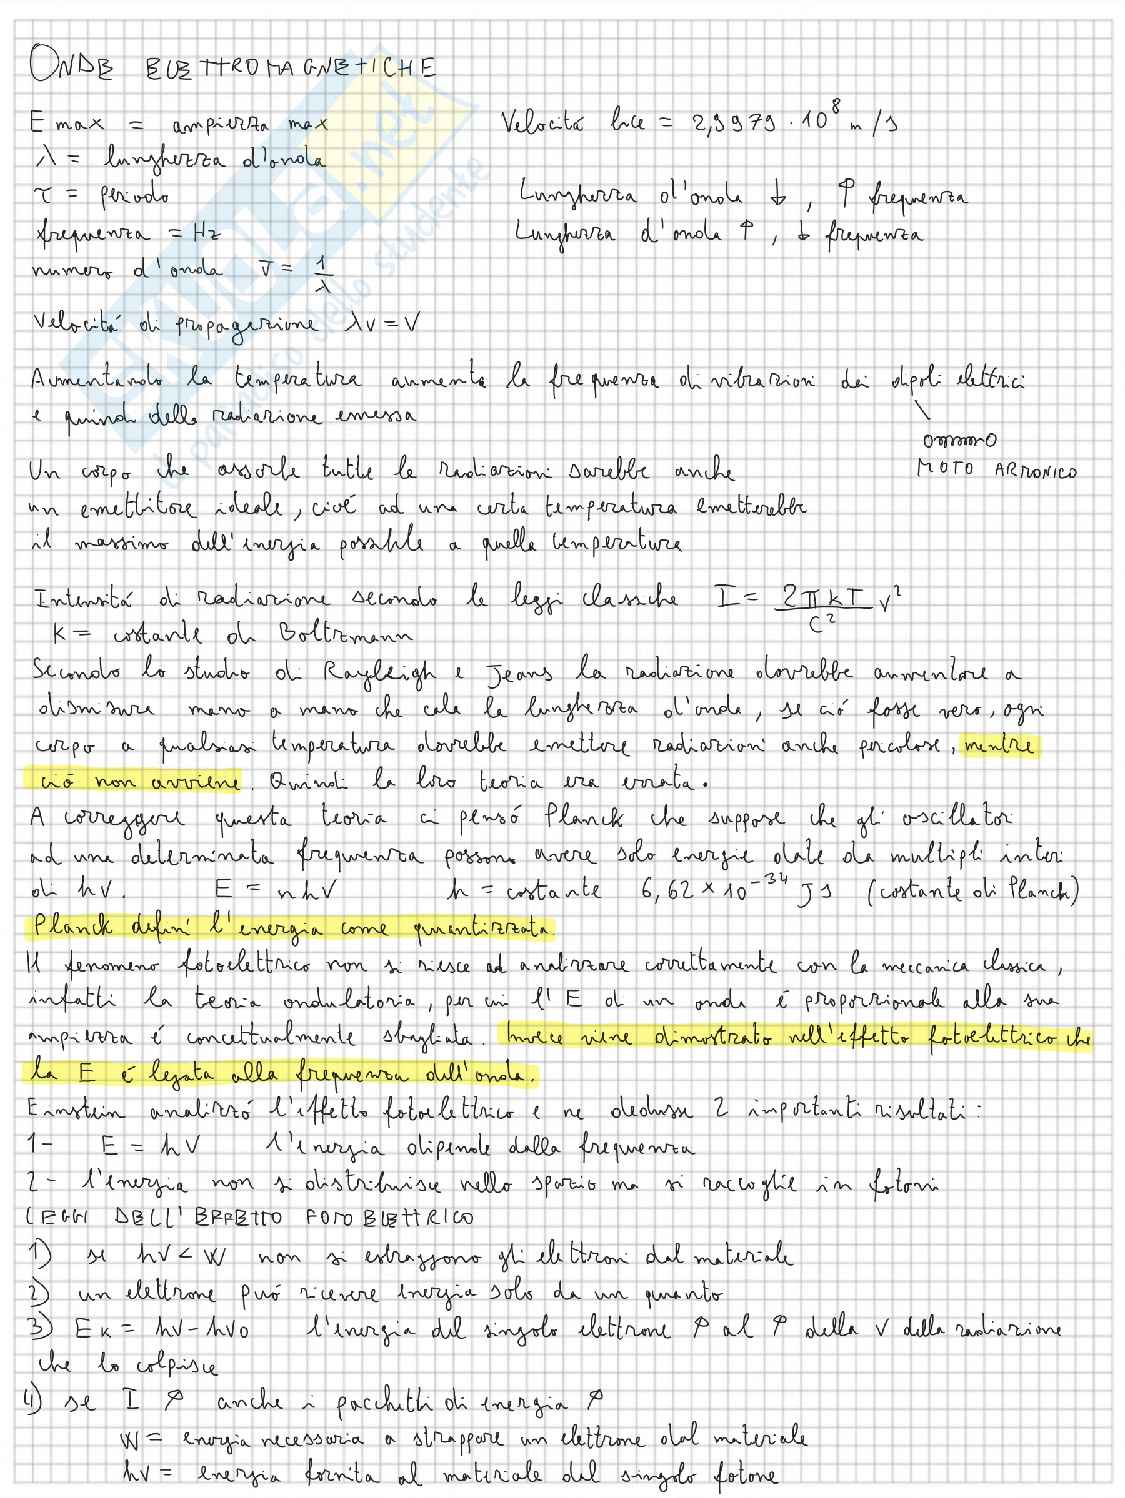 ONDE ELETTROMAGNETICHE
E max = ampiezza max
Velocitá luce = 2,9979 · 10⁸ m/s
λ = lunghezza d'onda
τ = periodo
Lunghezza d'onda ↓, ↑ frequenza
frequenza = Hz
Lunghezza d'onda ↑, ↓ frequenza
numero d'onda ν̅ = 1/λ
Velocitá di propagazione λν = V
Aumentando la temperatura aumenta la frequenza di vibrazioni dei dipoli elettrici
e quindi della radiazione emessa
MOTO ARMONICO
Un corpo che assorbe tutte le radiazioni sarebbe anche
un emettitore ideale, cioé ad una certa temperatura emetterebbe
il massimo dell'energia possibile a quella temperatura
Intensitá di radiazione secondo le leggi classiche I = 2πkT/C² ν²
K = costante di Boltzmann
Secondo lo studio di Rayleigh e Jeans la radiazione dovrebbe aumentare a
dismisura mano a mano che cala la lunghezza d'onda, se ció fosse vero, ogni
corpo a qualsiasi temperatura dovrebbe emettere radiazioni anche pericolose, mentre
ció non avviene. Quindi la loro teoria era errata.
A correggere questa teoria ci pensó Planck che suppose che gli oscillatori
ad una determinata frequenza possono avere solo energie date da multipli interi
di hν. E = nhν h = costante 6,62 × 10⁻³⁴ Js (costante di Planck)
Planck definí l'energia come quantizzata
Il fenomeno fotoelettrico non si riesce ad analizzare correttamente con la meccanica classica,
infatti la teoria ondulatoria, per cui l'E di un onda é proporzionale alla sua
ampiezza é concettualmente sbagliata. Invece viene dimostrato nell'effetto fotoelettrico che
la E é legata alla frequenza dell'onda.
Einstein analizzó l'effetto fotoelettrico e ne dedusse 2 importanti risultati:
1- E = hν l'energia dipende dalla frequenza
2- l'energia non si distribuisce nello spazio ma si raccoglie in fotoni
LEGGI DELL'EFFETTO FOTOELETTRICO
1) se hν < W non si estraggono gli elettroni dal materiale
2) un elettrone puó ricevere energia solo da un quanto
3) Eк = hν - hν0 l'energia del singolo elettrone ↑ al ↑ della ν della radiazione
che lo colpisce
4) se I ↑ anche i pacchetti di energia ↑
W = energia necessaria a strappare un elettrone dal materiale
hν = energia fornita al materiale dal singolo fotone
skuola.net